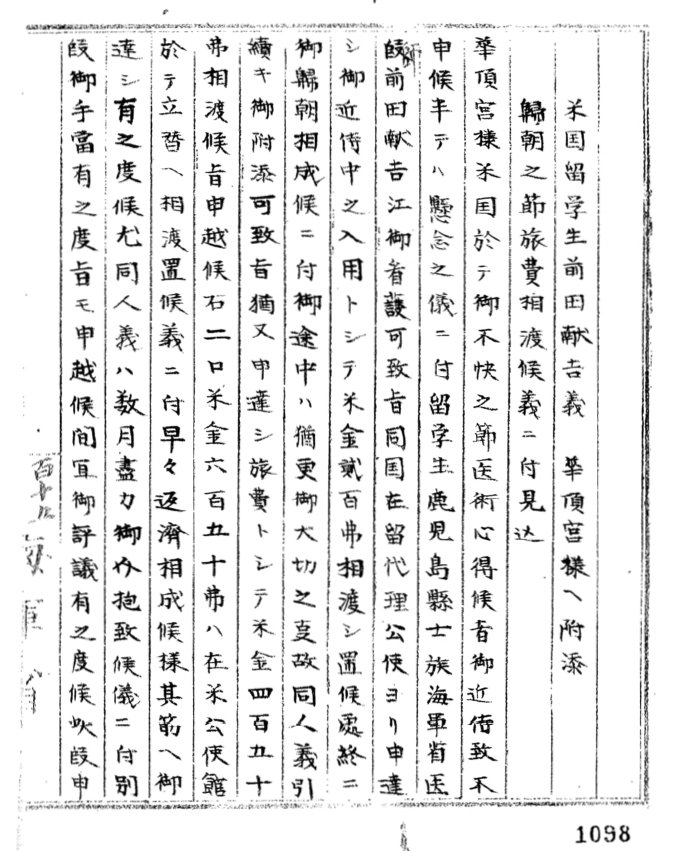 米国留学生前田献吉義 華頂宮様ヘ附添
歸朝之節旅費相渡候義ニ付見込
華頂宮様米国於テ御不快之節医術心得候者御近侍致不
申候半テハ懸念之儀ニ付留学生鹿児島縣士族海軍省医
師
段前田献吉江御看護可致旨同国在留代理公使ヨリ申達
シ御近侍中之入用トシテ米金貳百弗相渡シ置候處終ニ
御歸朝相成候ニ付御途中ハ猶更御大切之㕝故同人義引
續キ御附添可致旨猶又申達シ旅費トシテ米金四百五十
弗相渡候旨申越候右二口米金六百五十弗ハ在米公使館
於テ立替ヘ相渡置候義ニ付早々返濟相成候様其筋ヘ御
達シ有之度候尤同人義ハ数月盡力御介抱致候儀ニ付別
段御手當有之度旨モ申越候間宜御評議有之度候此段申
百十九
海軍省
1098